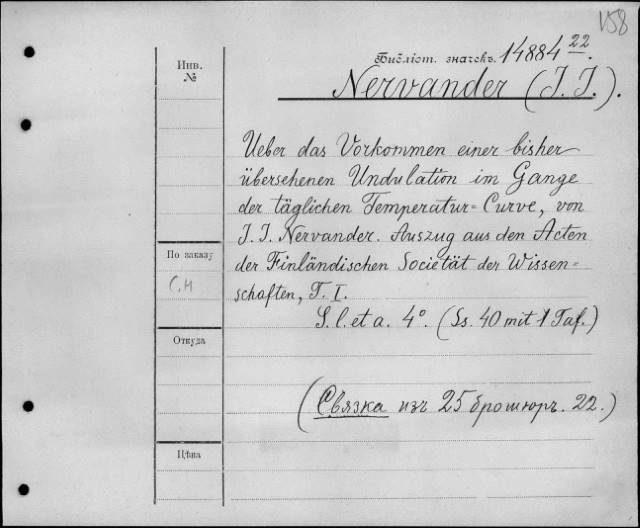 158
Библіот. значекъ. 14884 22.
Инв.
№
Nervander (J. J.).
Ueber das Vorkommen einer bisher
übersehenen Undulation im Gange
der täglichen Temperatur=Curve, von
J. J. Nervander. Auszug aus den Acten
По заказу
der Finländischen Societät der Wissen=
С.Н
schaften, T. I.
S. l. et a. 4°. (Ss. 40 mit 1 Taf.)
Откуда
(Связка изъ 25 брошюръ. 22.)
Цѣна